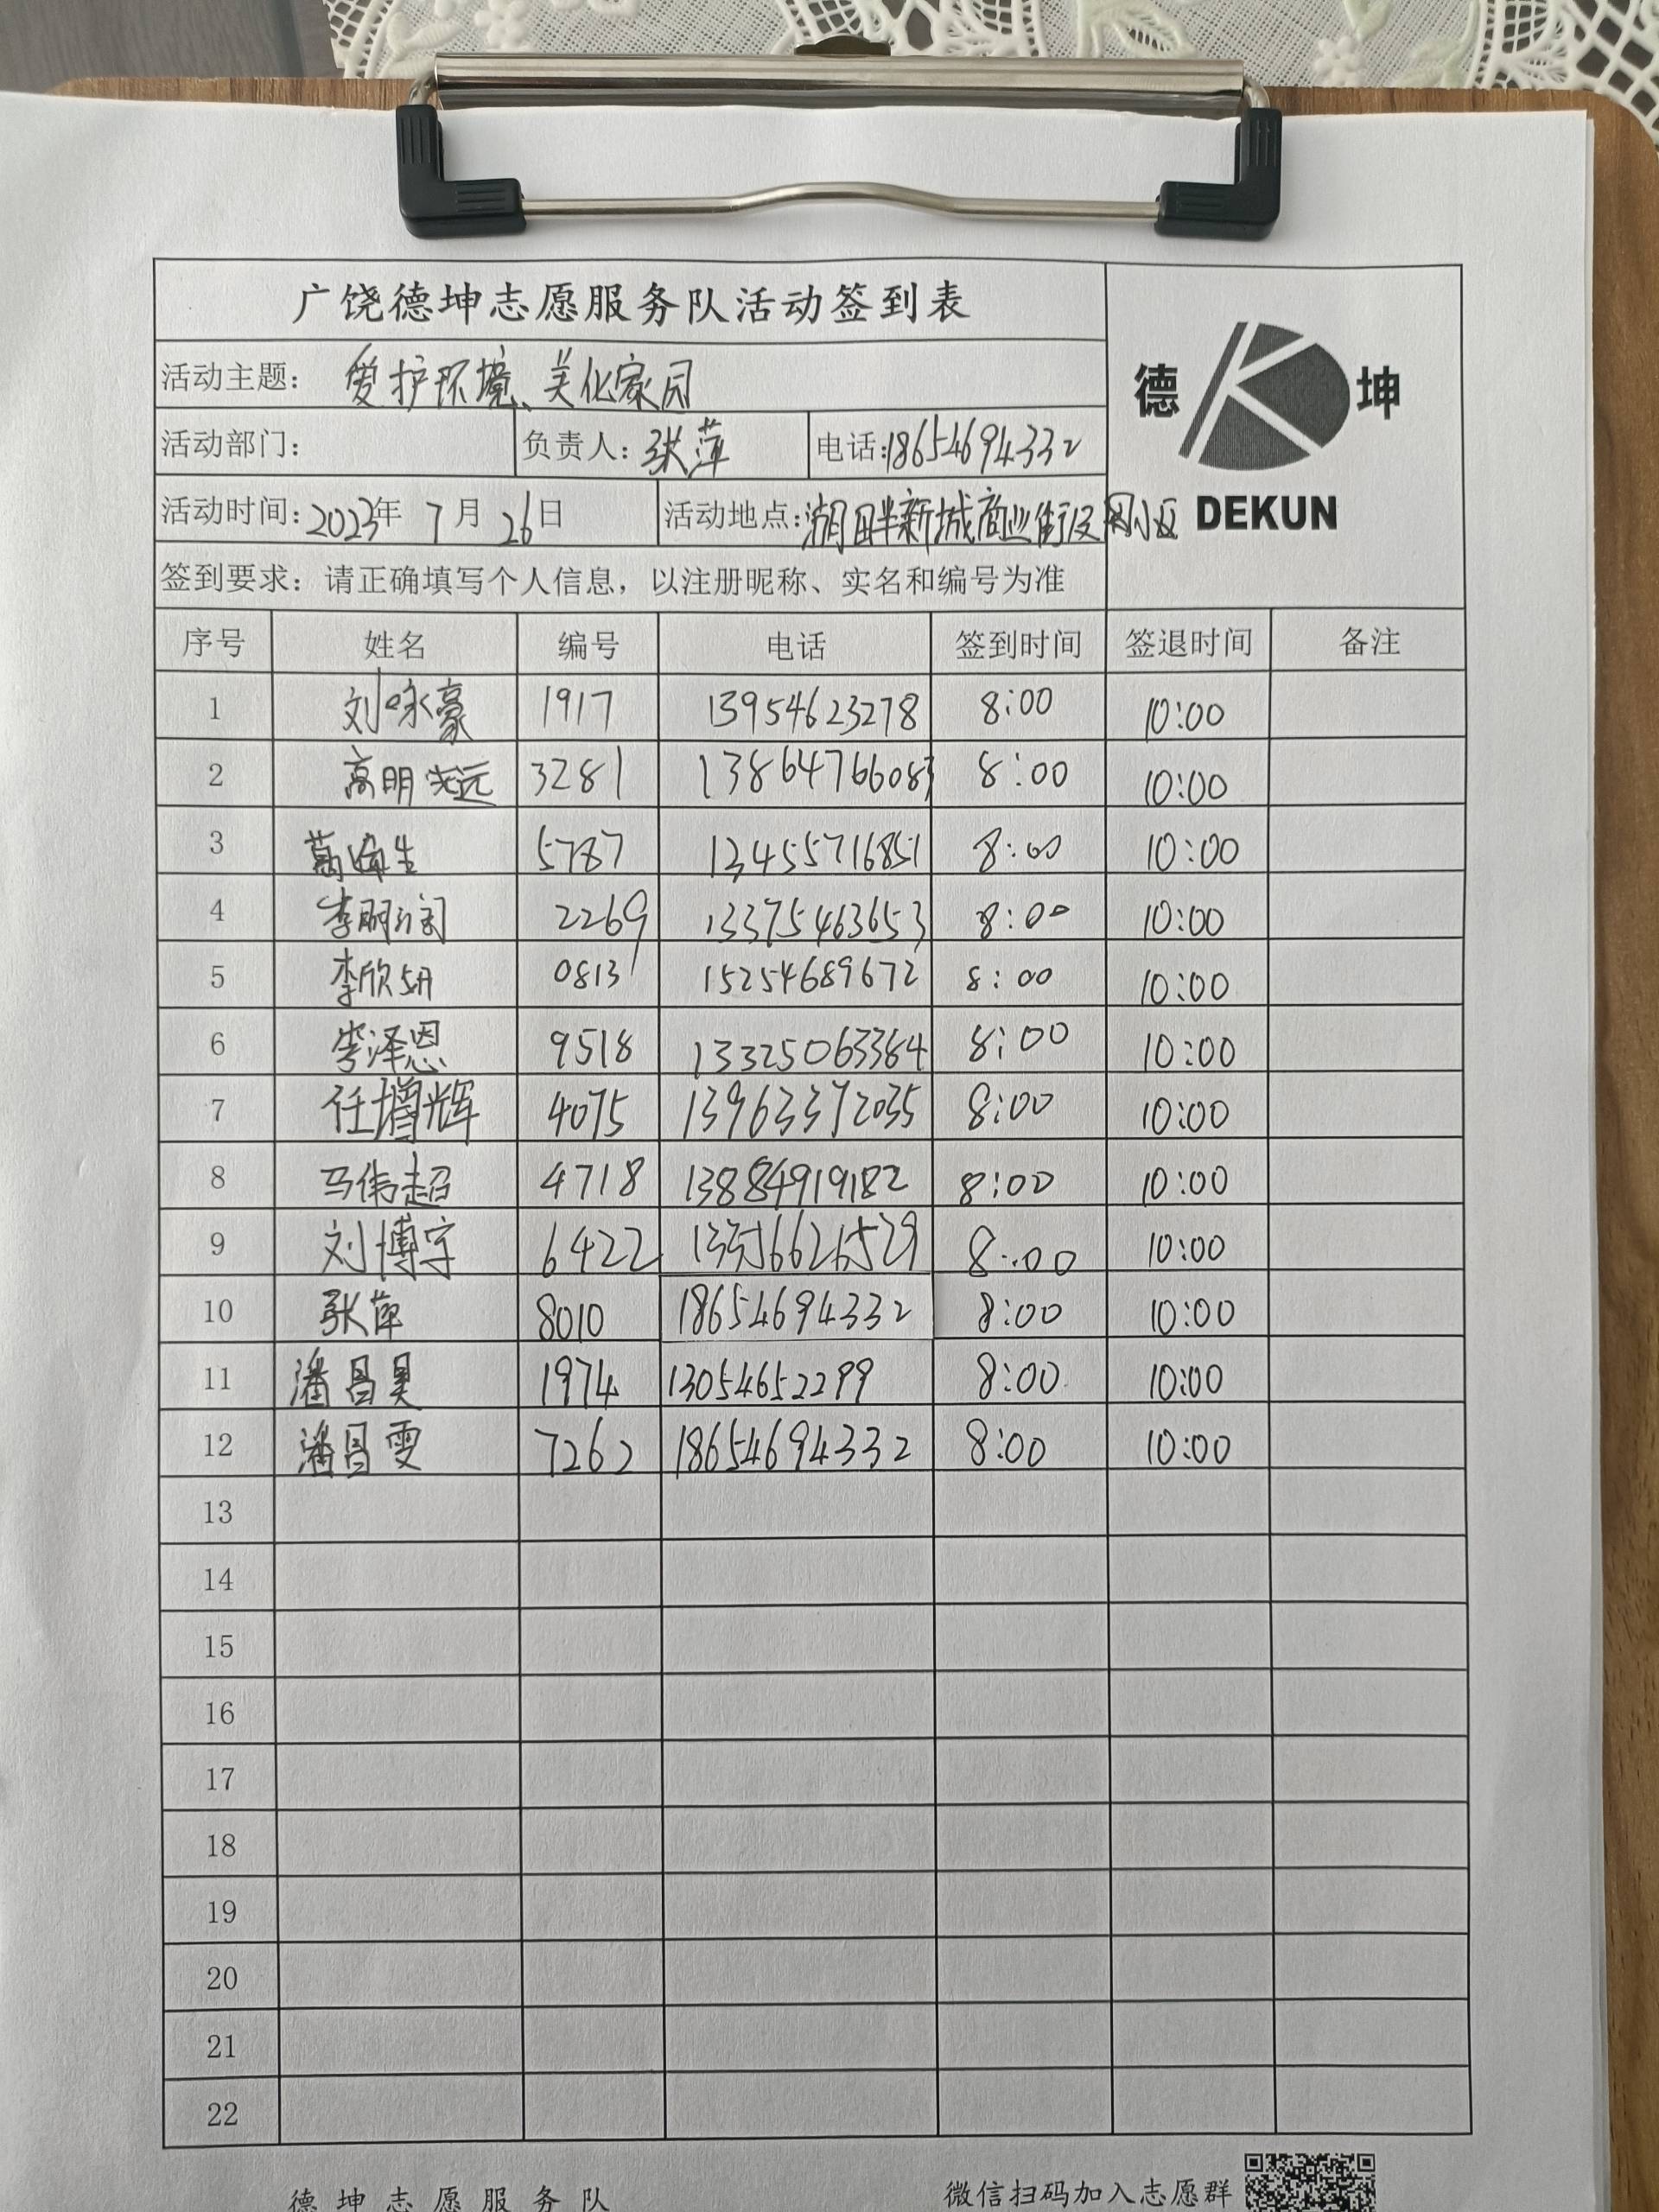 广饶德坤志愿服务队活动签到表
活动主题: 爱护环境、美化家园
活动部门: 负责人: 张萍 电话:18654694332
德 坤
DEKUN
活动时间:2023年 7月 26日 活动地点:湖畔新城商业街及周小区
签到要求: 请正确填写个人信息，以注册昵称、实名和编号为准
序号 姓名 编号 电话 签到时间 签退时间 备注
1 刘咏豪 1917 13954623278 8:00 10:00
2 高明志远 3281 13864766083 8:00 10:00
3 葛海生 5787 13455716851 8:00 10:00
4 李明润 2269 13375463653 8:00 10:00
5 李欣妍 0813 15254689672 8:00 10:00
6 李泽恩 9518 13325063364 8:00 10:00
7 任增辉 4075 13963372035 8:00 10:00
8 马伟超 4718 13884919182 8:00 10:00
9 刘博宇 6422 8:00 10:00
10 张萍 8010 18654694332 8:00 10:00
11 潘昌昊 1974 13054652299 8:00 10:00
12 潘昌雯 7262 18654694332 8:00 10:00
13
14
15
16
17
18
19
20
21
22
德坤志愿服务队 微信扫码加入志愿群